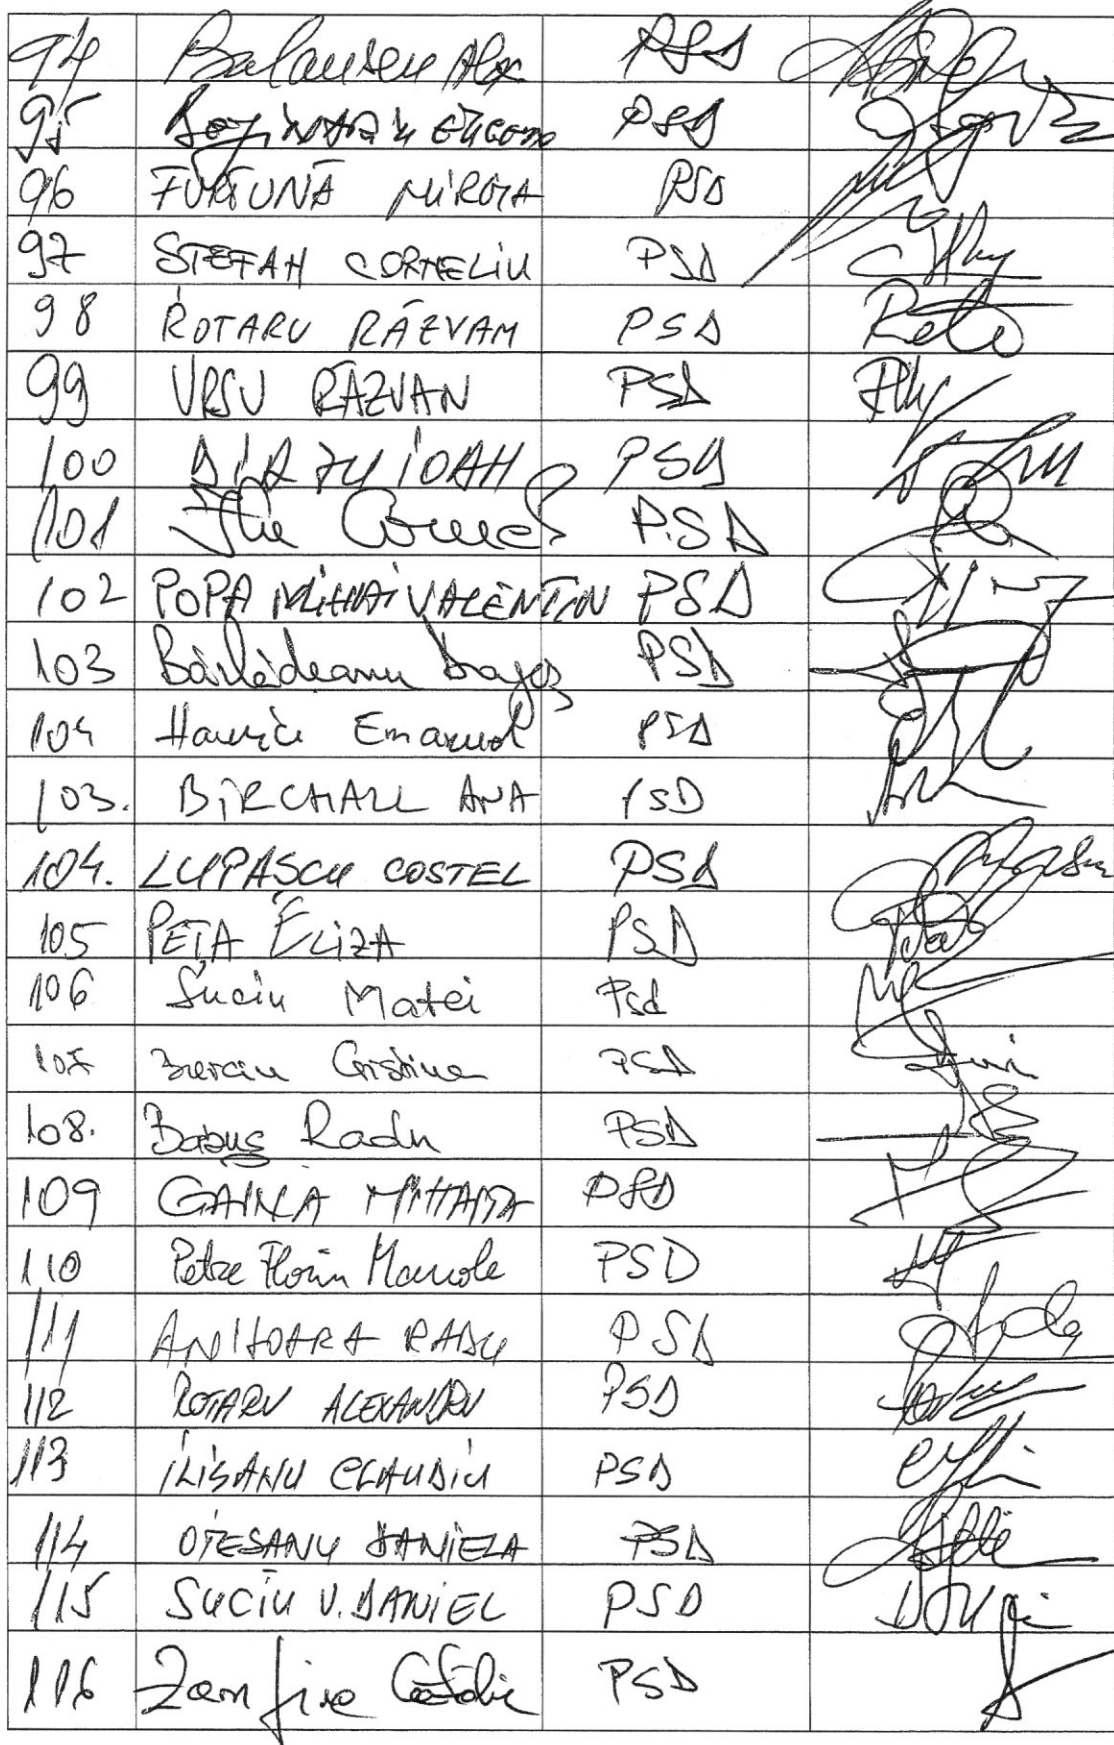 94 Balauseu Alex PSD
95 PSD
96 FURTUNĂ MIRCIA PSD
97 STEFAN CORNELIU PSD
98 ROTARU RĂZVAN PSD
99 URSU RĂZVAN PSD
100 DÎRZU IOAN PSD
101 Ilie P.S.D
102 POPA MIHAI VALENTIN PSD
103 Bârlădeanu Dragoș PSD
104 Havrici Emanuel PSD
103. BIRCHALL ANA PSD
104. LUPASCU COSTEL PSD
105 PEȚA ELIZA PSD
106 Suciu Matei Psd
107 Burciu Cristina PSD
108. Babuș Radu PSD
109 GAINĂ MIHAITA PSD
110 Petre Florin Manole PSD
111 ANIȚOAEA RADU PSD
112 ROTARU ALEXANDRU PSD
113 ILISANU CLAUDIU PSD
114 OTESANU DANIELA PSD
115 SUCIU V. DANIEL PSD
116 Zamfira Cătălin PSD